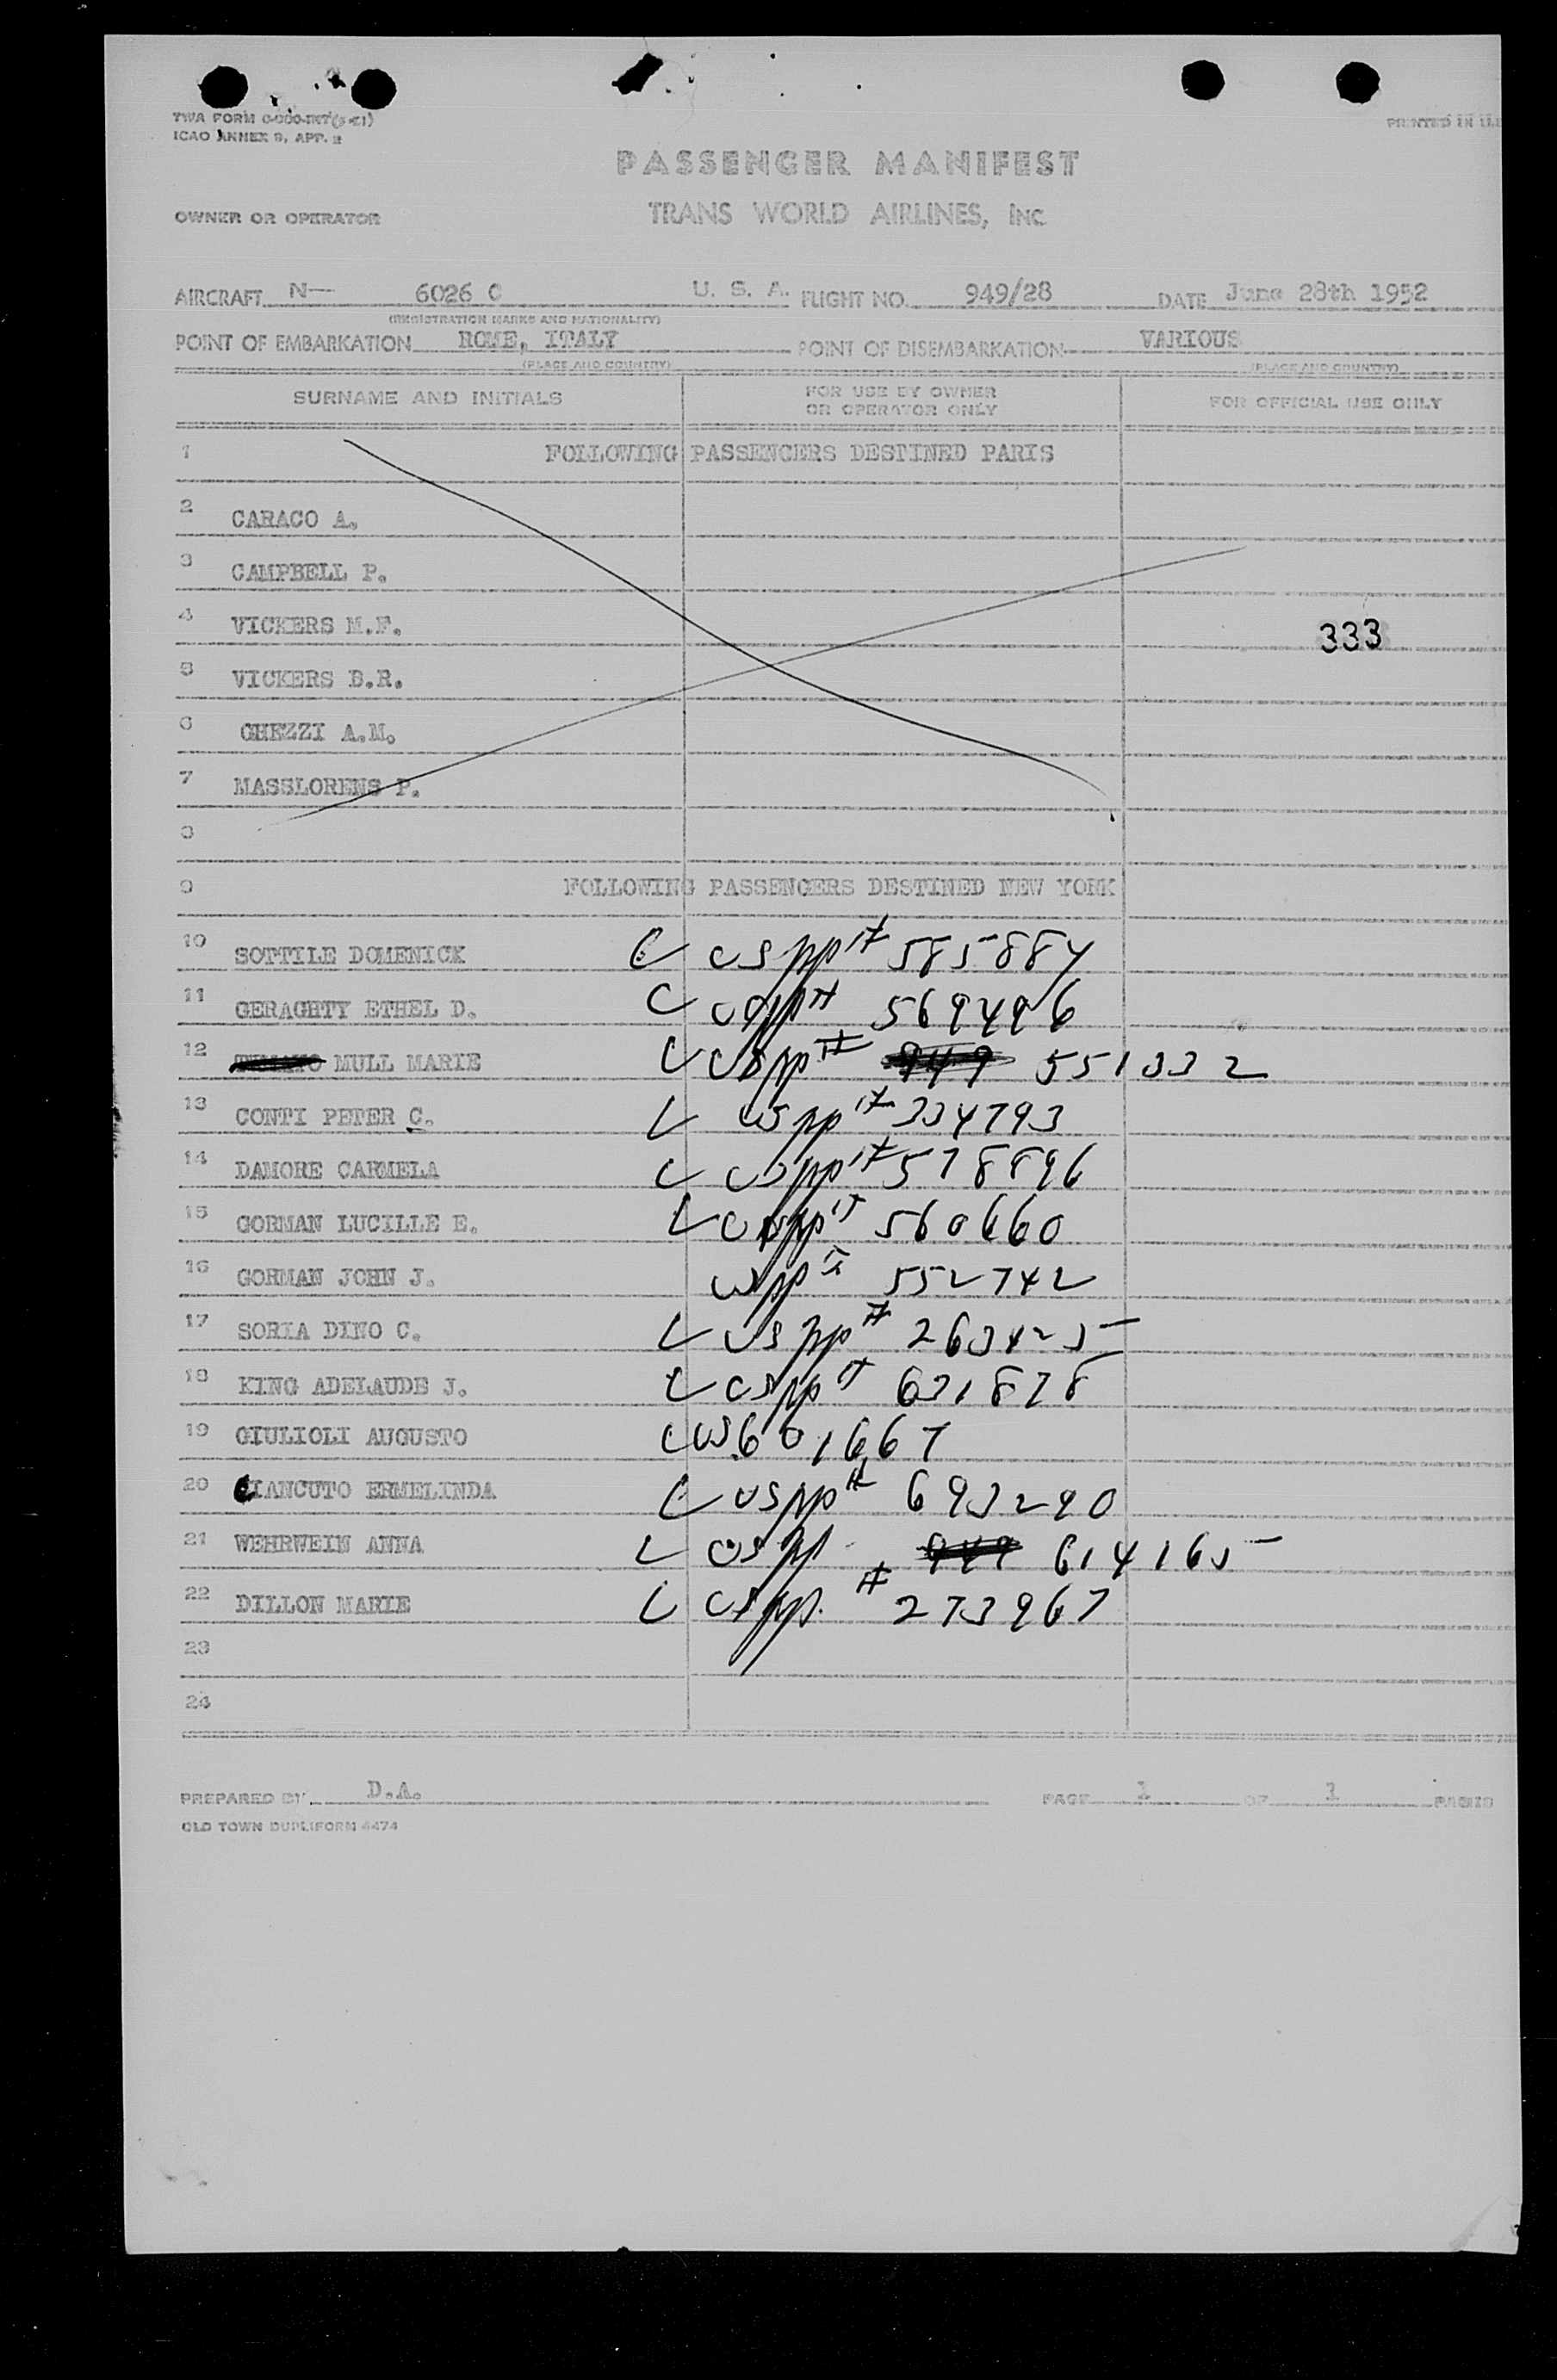 TWA FORM
ICAO ANNEX 9, APP. 2
PRINTED IN U.S
PASSENGER MANIFEST
OWNER OR OPERATOR TRANS WORLD AIRLINES, INC
AIRCRAFT N— 6026 C U. S. A. FLIGHT NO. 949/28 DATE June 28th 1952
(REGISTRATION MARKS AND NATIONALITY)
POINT OF EMBARKATION ROME, ITALY POINT OF DISEMBARKATION VARIOUS
(PLACE AND COUNTRY) (PLACE AND COUNTRY)
SURNAME AND INITIALS FOR USE BY OWNER OR OPERATOR ONLY FOR OFFICIAL USE ONLY
1 FOLLOWING PASSENGERS DESTINED PARIS
2 CARACO A.
3 CAMPBELL P.
4 VICKERS M.F. 333
5 VICKERS B.R.
6 GHEZZI A.M.
7 MASSLORENS P.
8
9 FOLLOWING PASSENGERS DESTINED NEW YORK
10 SOTTILE DOMENICK US pp # 585884
11 GERAGHTY ETHEL D. US pp # 569496
12 MULL MARIE US pp # 949 551332
13 CONTI PETER C. US pp # 334793
14 DAMORE CARMELA US pp # 578896
15 GORMAN LUCILLE E. US pp # 560660
16 GORMAN JOHN J. US pp # 552742
17 SORIA DINO C. US pp # 263425
18 KING ADELAUDE J. US pp # 631878
19 GIULIOLI AUGUSTO US 601667
20 CIANCUTO ERMELINDA US pp # 693290
21 WEHRWEIN ANNA US pp 949 614165
22 DILLON MARIE US pp. # 273967
23
24
PREPARED BY D.A. PAGE 1 OF 1 PAGES
OLD TOWN DUPLIFORM 4474